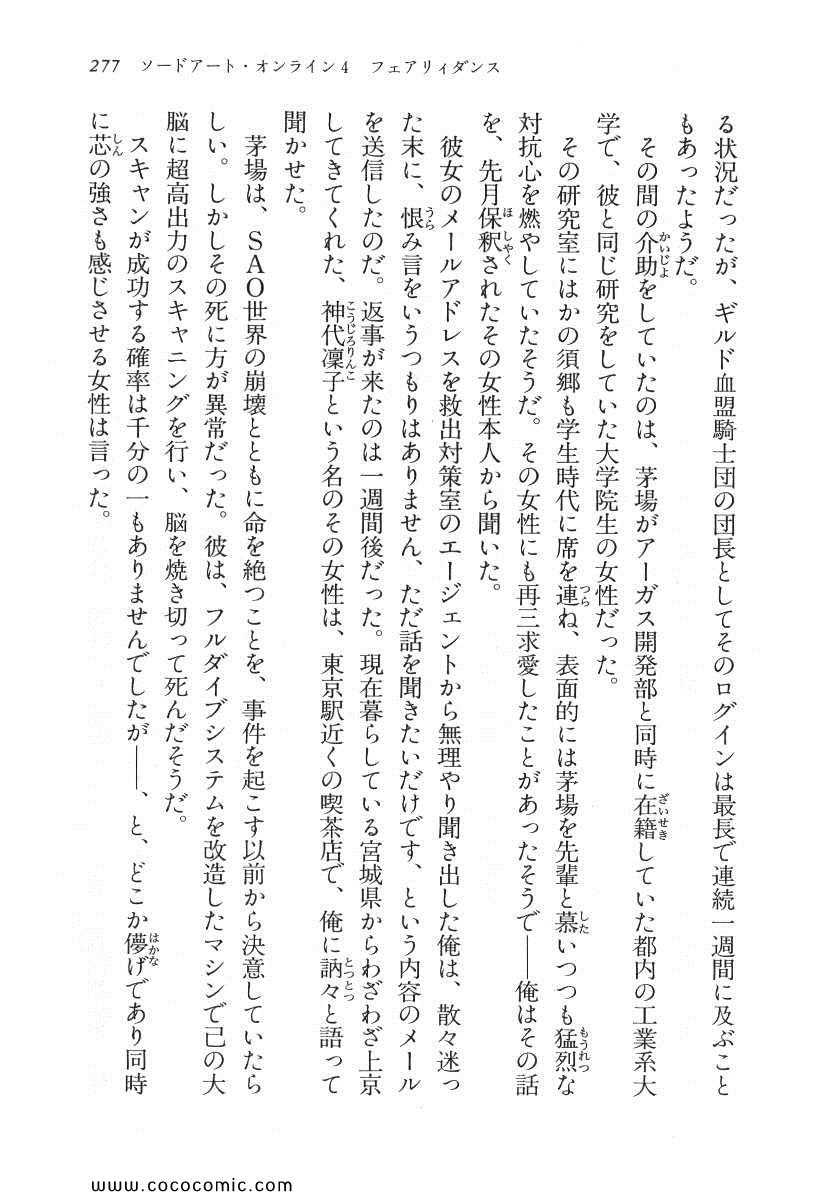 277 ソードアート・オンライン4 フェアリィダンス
る状況だったが、ギルド血盟騎士団の団長としてそのログインは最長で連続一週間に及ぶこと
もあったようだ。
その間の介助をしていたのは、茅場がアーガス開発部と同時に在籍していた都内の工業系大
学で、彼と同じ研究をしていた大学院生の女性だった。
その研究室にはかの須郷も学生時代に席を連ね、表面的には茅場を先輩と慕いつつも猛烈な
対抗心を燃やしていたそうだ。その女性にも再三求愛したことがあったそうで――俺はその話
を、先月保釈されたその女性本人から聞いた。
彼女のメールアドレスを救出対策室のエージェントから無理やり聞き出した俺は、散々迷っ
た末に、恨み言をいうつもりはありません、ただ話を聞きたいだけです、という内容のメール
を送信したのだ。返事が来たのは一週間後だった。現在暮らしている宮城県からわざわざ上京
してきてくれた、神代凜子という名のその女性は、東京駅近くの喫茶店で、俺に訥々と語って
聞かせた。
茅場は、SAO世界の崩壊とともに命を絶つことを、事件を起こす以前から決意していたら
しい。しかしその死に方が異常だった。彼は、フルダイブシステムを改造したマシンで己の大
脳に超高出力のスキャニングを行い、脳を焼き切って死んだそうだ。
スキャンが成功する確率は千分の一もありませんでしたが――、と、どこか儚げであり同時
に芯の強さも感じさせる女性は言った。
www.cococomic.com